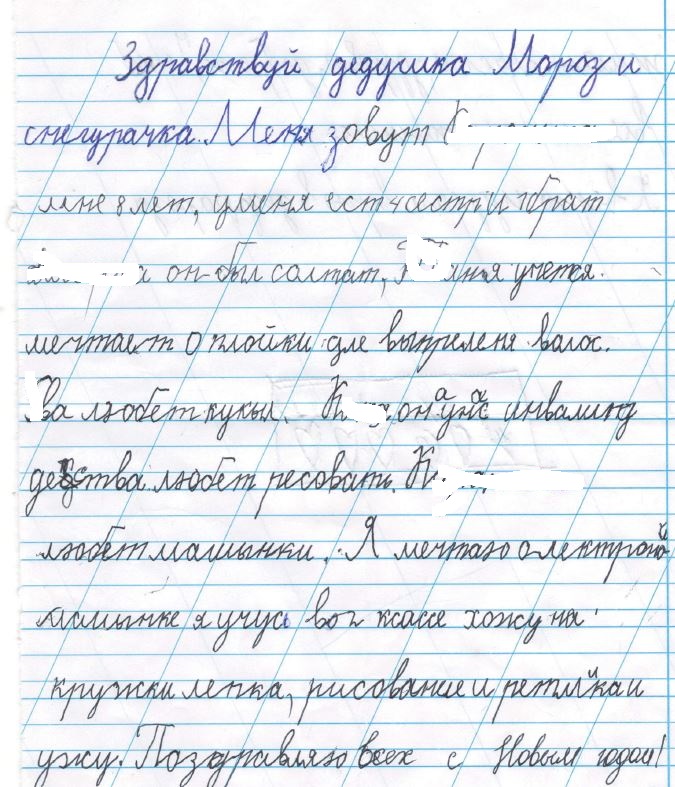 Здравствуй дедушка Мороз и
снегурачка. Меня зовут
мне 8 лет, уменя ест 4 сестри 1 брат
он был солтат, учетя.
мечтает о плойки для выпреленя валос.
любет кукыл. он у нас инвалинд
детства любет ресовать.
любет машынки. Я мечтаю о лектроной
машынке я учус во 2 классе хожу на
кружки лепка, рисование и
ужу. Поздравляю всех с Новым годом!